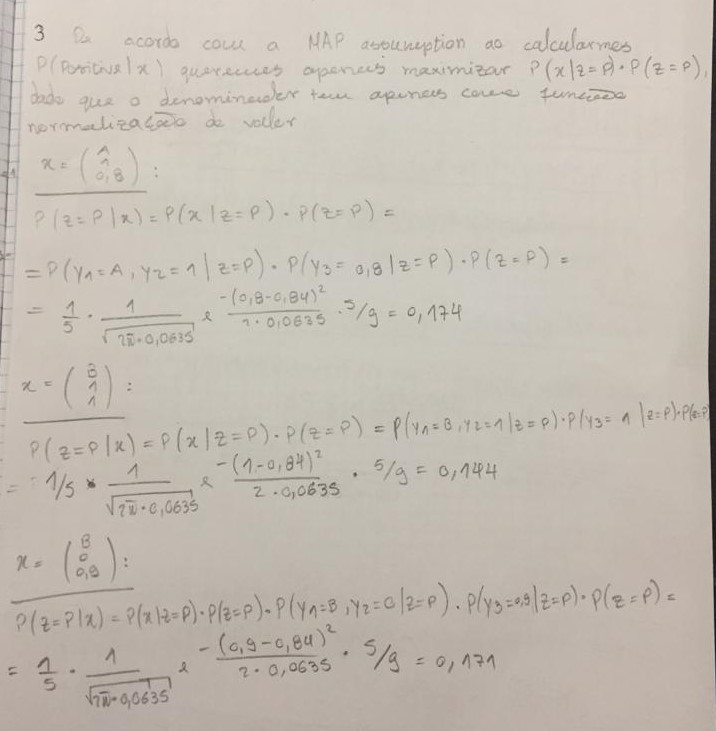 3 De acordo com a MAP assumption ao calcularmos
P(Positive|x) queremos apenas maximizar P(x|z=P)·P(z=P),
dado que o denominador tem apenas como função
normalização do valor
x = (A 1 0,8) :
P(z=P|x) = P(x|z=P) · P(z=P) =
= P(y1=A, y2=1|z=P) · P(y3=0,8|z=P) · P(z=P) =
= 1/5 · 1/√(2π·0,0635) e^(-(0,8-0,84)²/(2·0,0635)) · 5/9 = 0,174
x = (B 1 1) :
P(z=P|x) = P(x|z=P) · P(z=P) = P(y1=B, y2=1|z=P) · P(y3=1|z=P) · P(z=P)
= 1/5 × 1/√(2π·0,0635) e^(-(1-0,84)²/(2·0,0635)) · 5/9 = 0,144
x = (B 0 0,9) :
P(z=P|x) = P(x|z=P) · P(z=P) = P(y1=B, y2=0|z=P) · P(y3=0,9|z=P) · P(z=P) =
= 1/5 · 1/√(2π·0,0635) e^(-(0,9-0,84)²/(2·0,0635)) · 5/9 = 0,171